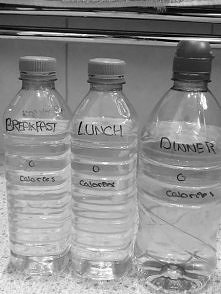 BREAKFAST
0
Calories
LUNCH
0
Calories
DINNER
0
Calories